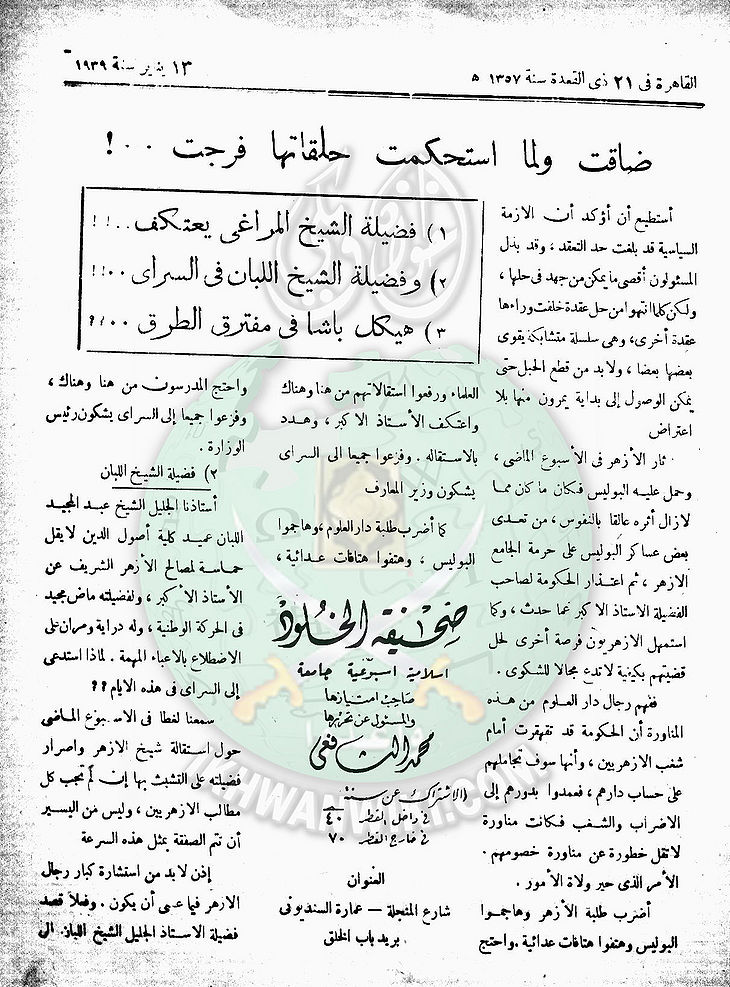 القاهرة فى ٢١ ذى القعدة سنة ١٣٥٧ ه
١٣ يناير سنة ١٩٣٩
ضاقت ولما استحكمت حلقاتها فرجت ٠٠ !
١) فضيلة الشيخ المراغى يعتكف ٠٠ ! !
٢) وفضيلة الشيخ اللبان فى السراى ٠٠ ! !
٣) هيكل باشا فى مفترق الطرق ٠٠ ! ؟
أستطيع أن أؤكد أن الازمة
السياسية قد بلغت حد التعقد ، وقد بذل
المسئولون أقصى ما يمكن من جهد فى حلها ،
ولكن كلما انتهوا من حل عقدة خلفت وراءها
عقدة أخرى، وهى سلسلة متشابكة يقوى
بعضها بعضا ، ولابد من قطع الحبل حتى
يمكن الوصول إلى بداية يمرون منها بلا
اعتراض
ثار الأزهر فى الأسبوع الماضى ،
وحمل عليه البوليس فكان ما كان مما
لازال أثره عالقا بالنفوس ، من تعدى
بعض عساكر البوليس على حرمة الجامع
الازهر ، ثم اعتذار الحكومة لصاحب
الفضيلة الاستاذ الاكبر عما حدث ، وكما
استمهل الازهريون فرصة أخرى لحل
قضيتهم بكيفية لاتدع مجالا للشكوى .
ففهم رجال دار العلوم من هذه
المناورة أن الحكومة قد تقهقرت أمام
شغب الازهريين ، وأنها سوف تجاملهم
على حساب دارهم ، فعمدوا بدورهم إلى
الاضراب والشغب فكانت مناورة
لاتقل خطورة عن مناورة خصومهم .
الأمر الذى حير ولاة الأمور .
أضرب طلبة الأزهر وهاجموا
البوليس وهتفوا هتافات عدائية .واحتج
العلماء ورفعوا استقالاتهم من هنا وهناك
واعتكف الأستاذ الاكبر ، وهدد
بالاستقاله . وفزعوا جميعا الى السراى
يشكون وزير المعارف
كما أضرب طلبة دار العلوم ،وهاجموا
البوليس ، وهتفوا هتافات عدائية ،
صحيفة الخلود
اسلامية اسبوعية جامعة
صاحب امتيازها
والمسئول عن تحريرها
محمد الشافعى
الاشتراك عن سنة
فى داخل القطر ٤٠
فى خارج القطر ٧٠
العنوان
شارع المنجلة — عمارة السنديونى
بريد باب الخلق
واحتج المدرسون من هنا وهناك ،
وفزعوا جميعا إلى السراى يشكون رئيس
الوزارة .
٢) فضيلة الشيخ اللبان
أستاذنا الجليل الشيخ عبد المجيد
اللبان عميد كلية أصول الدين لايقل
حماسة لمصالح الأزهر الشريف عن
الأستاذ الأكبر ، ولفضيلته ماض مجيد
فى الحركة الوطنية ، وله دراية ومران على
الاضطلاع بالاعباء المهمة . لماذا استدعى
إلى السراى فى هذه الايام ؟؟
سمعنا لغطا فى الاسبوع الماضى
حول استقالة شيخ الازهر واصرار
فضيلته على التشبث بها إن لم تجب كل
مطالب الازهريين ، وليس من اليسير
أن تتم الصفقة بمثل هذه السرعة
إذن لابد من استشارة كبار رجال
الازهر فيما عسى أن يكون . وفعلا قصد
فضيلة الاستاذ الجليل الشيخ اللبان الى
IKHWANWIKI.COM